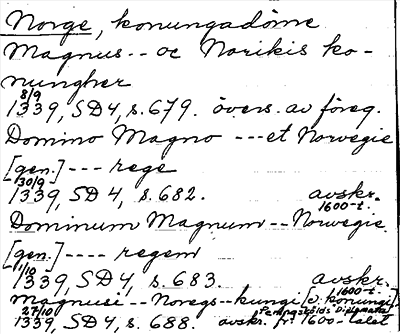 Norge, konungadöme
Magnus -- oc Norikis ko-
nungher
8/9
1339, SD4, s. 679. övers. av föreg.
Domino Magno --- et Norwegie
[gen.] --- rege
30/9
1339, SD4, s. 682. avskr.
1600-t.
Dominum Magnum -- Norwegie
[gen.] ---- regem
1/10
1339, SD4, s. 683. avskr.
1600-t.
Magnusi -- Noregs - kungi [o. konungi]
27/10 Peringskiölds Diplomata
1339, SD4, s. 688. avskr. fr. 1600-talet